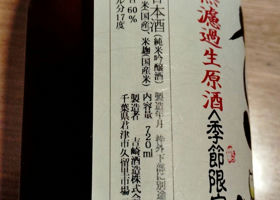 無濾過生原酒
<季節限定
日本酒(純米吟醸酒)
(米国産)、米麹(国産米)
60%
ル分17度
製造年月 枠外下部に別途
内容量 720ml
製造者 吉崎酒造株式会
千葉県君津市久留里市場